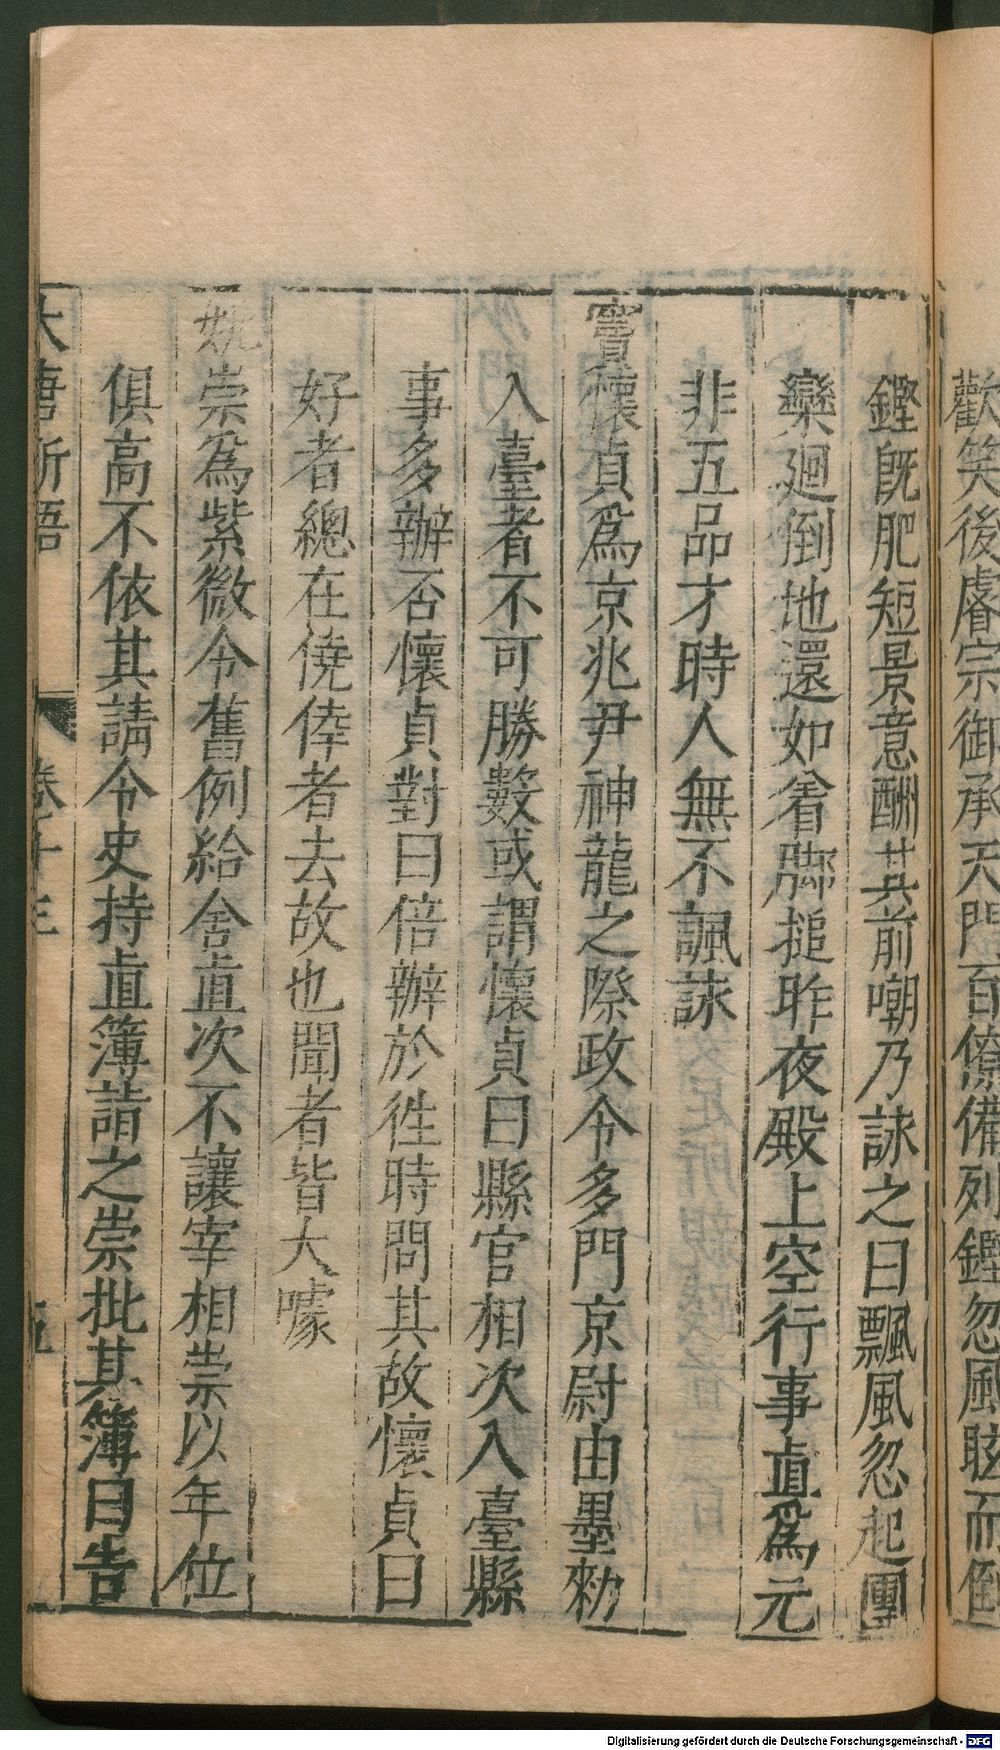 歡笑後睿宗御承天門百僚備列鏗忽風眩而倒
鏗旣肥短景意酬其前嘲乃詠之曰飄風忽起團
欒廻倒地還如着脚搥昨夜殿上空行事直爲元
非五品才時人無不諷詠
竇懷貞爲京兆尹神龍之際政令多門京尉由墨勑
入臺者不可勝數或謂懷貞曰縣官相次入臺縣
事多辦否懷貞對曰倍辦於徃時問其故懷貞曰
好者總在僥倖者去故也聞者皆大噱
姚崇爲紫微令舊例給舍直次不讓宰相崇以年位
俱高不依其請令史持直簿詣之崇批其簿曰告
大唐新語 卷十三
Digitalisierung gefördert durch die Deutsche Forschungsgemeinschaft - DFG